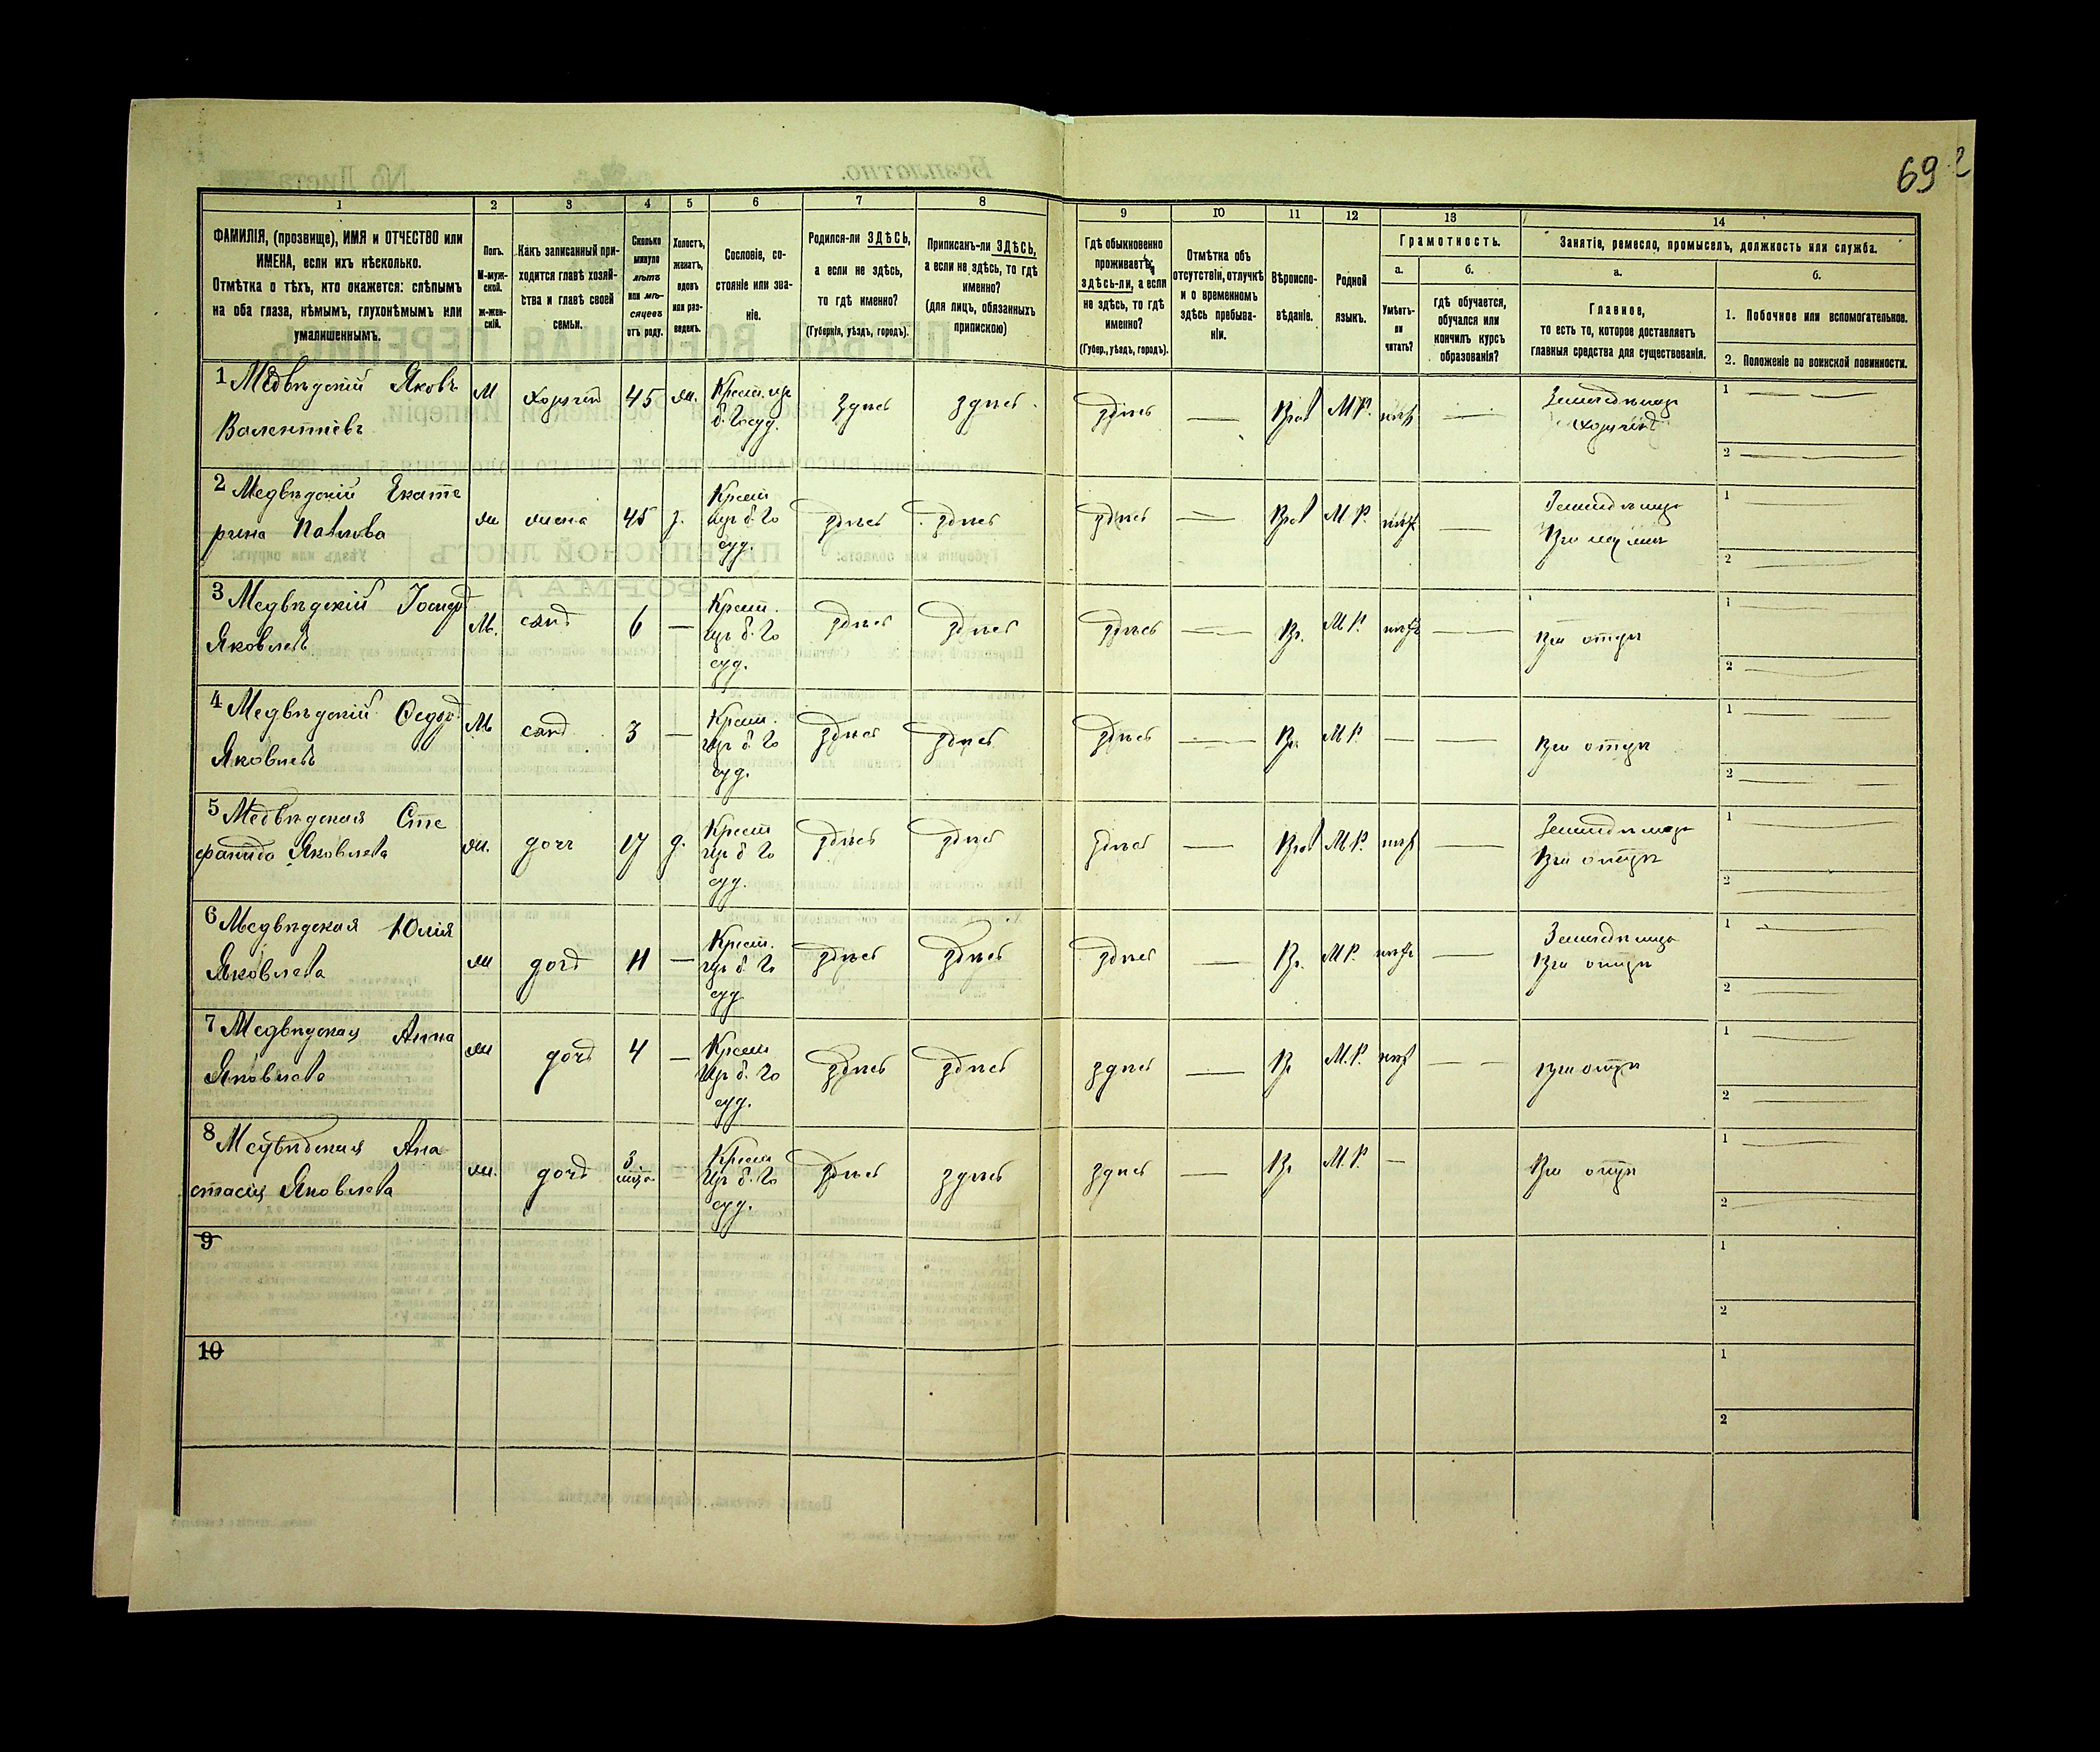 69
1 2 3 4 5 6 7 8 9 10 11 12 13 14
ФАМИЛІЯ, (прозвище), ИМЯ и ОТЧЕСТВО или
ИМЕНА, если ихъ нѣсколько.
Отмѣтка о тѣхъ, кто окажется: слѣпымъ
на оба глаза, нѣмымъ, глухонѣмымъ или
умалишеннымъ.
Полъ.
М-муж-
ской.
ж-жен-
скій.
Какъ записанный при-
ходится главѣ хозяй-
ства и главѣ своей
семьи.
Сколько
минуло
лѣтъ
или мѣ-
сяцевъ
отъ роду.
Холостъ,
женатъ,
вдовъ
или раз-
веденъ.
Сословіе, со-
стояніе или зва-
ніе.
Родился-ли ЗДѢСЬ,
а если не здѣсь,
то гдѣ именно?
(Губернія, уѣздъ, городъ).
Приписанъ-ли ЗДѢСЬ,
а если не здѣсь, то гдѣ
именно?
(для лицъ, обязанныхъ
припискою)
Гдѣ обыкновенно
проживаетъ,
здѣсь-ли, а если
не здѣсь, то гдѣ
именно?
(Губер., уѣздъ, городъ).
Отмѣтка объ
отсутствіи, отлучкѣ
и о временномъ
здѣсь пребыва-
ніи.
Вѣроиспо-
вѣданіе.
Родной
языкъ.
Грамотность.
а.
Умѣетъ-
ли
читать?
б.
гдѣ обучается,
обучался или
кончилъ курсъ
образованія?
Занятіе, ремесло, промыселъ, должность или служба.
а.
Главное,
то есть то, которое доставляетъ
главныя средства для существованія.
б.
1. Побочное или вспомогательное.
2. Положеніе по воинской повинности.
1 Медвѣдскій Яковъ М 45 ж. Крест. изъ здѣсь здѣсь здѣсь — М.Р. — 1 —
Валентіевъ б. Госуд. 2 —
2 Медвѣдскій Екате ж жена 45 з. Крест здѣсь здѣсь здѣсь — М.Р. — 1 —
рина Павлова изъ б. Го 2 —
суд.
3 Медвѣдскій Іосифъ М. сынъ 6 — Крест. здѣсь здѣсь здѣсь — М.Р. — При отцѣ 1 —
Яковлевъ изъ б. Го 2 —
суд.
4 Медвѣдскій Ѳедоръ М сынъ 3 — Крест. здѣсь здѣсь здѣсь — М.Р. — — При отцѣ 1 —
Яковлевъ изъ б. Го 2 —
суд.
5 Медвѣдская Сте ж. дочь 17 д. Крест здѣсь здѣсь здѣсь — М.Р. — При отцѣ 1 —
Яковлева изъ б Го 2 —
суд.
6 Медвѣдская Юлія ж дочь 11 — Крест. здѣсь здѣсь здѣсь — М.Р. — При отцѣ 1 —
Яковлева изъ б. Го 2 —
суд
7 Медвѣдская Анна ж дочь 4 — Крест здѣсь здѣсь здѣсь — М.Р. — При отцѣ 1 —
Яковлева изъ б. Го 2 —
суд.
8 Медвѣдская Ана ж. дочь 3 — Крест здѣсь здѣсь здѣсь — М.Р. — При отцѣ 1 —
стасія Яковлева изъ б. Го 2 —
суд.
9 1
2
10 1
2